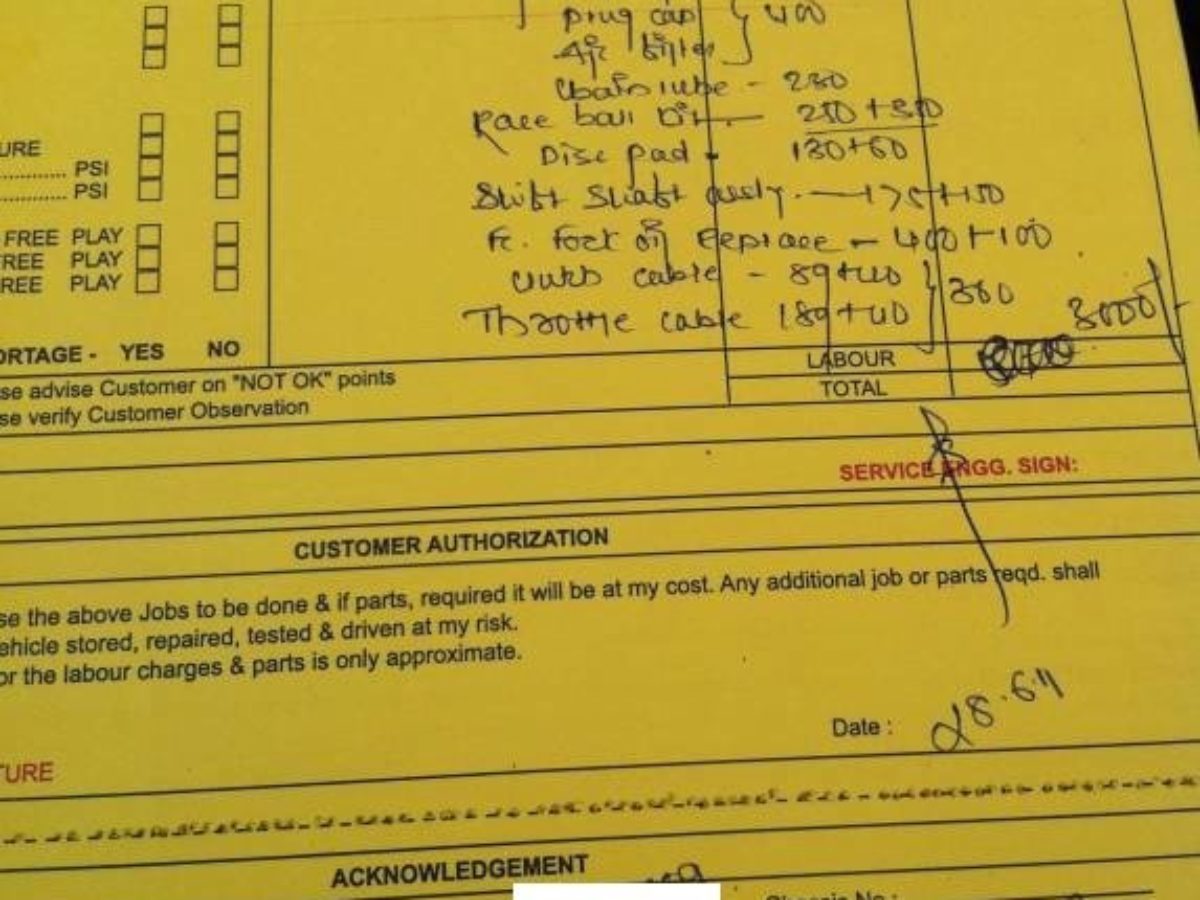 plug cap } 400
Air filter
Chain lube - 280
Race ball
URE
Disc pad - 130+60
PSI
PSI
Shift Shaft assly. - 175+150
FREE PLAY
Fr. fork oil Replace - 400+100
REE PLAY
REE PLAY
cable - 89+40 } 360
Throttle cable 189+40
3000/
ORTAGE - YES NO
LABOUR
se advise Customer on "NOT OK" points
TOTAL
se verify Customer Observation
SERVICE ENGG. SIGN:
CUSTOMER AUTHORIZATION
se the above Jobs to be done & if parts, required it will be at my cost. Any additional job or parts reqd. shall
ehicle stored, repaired, tested & driven at my risk.
or the labour charges & parts is only approximate.
Date : 28.6.11
TURE
ACKNOWLEDGEMENT
Chassis No :